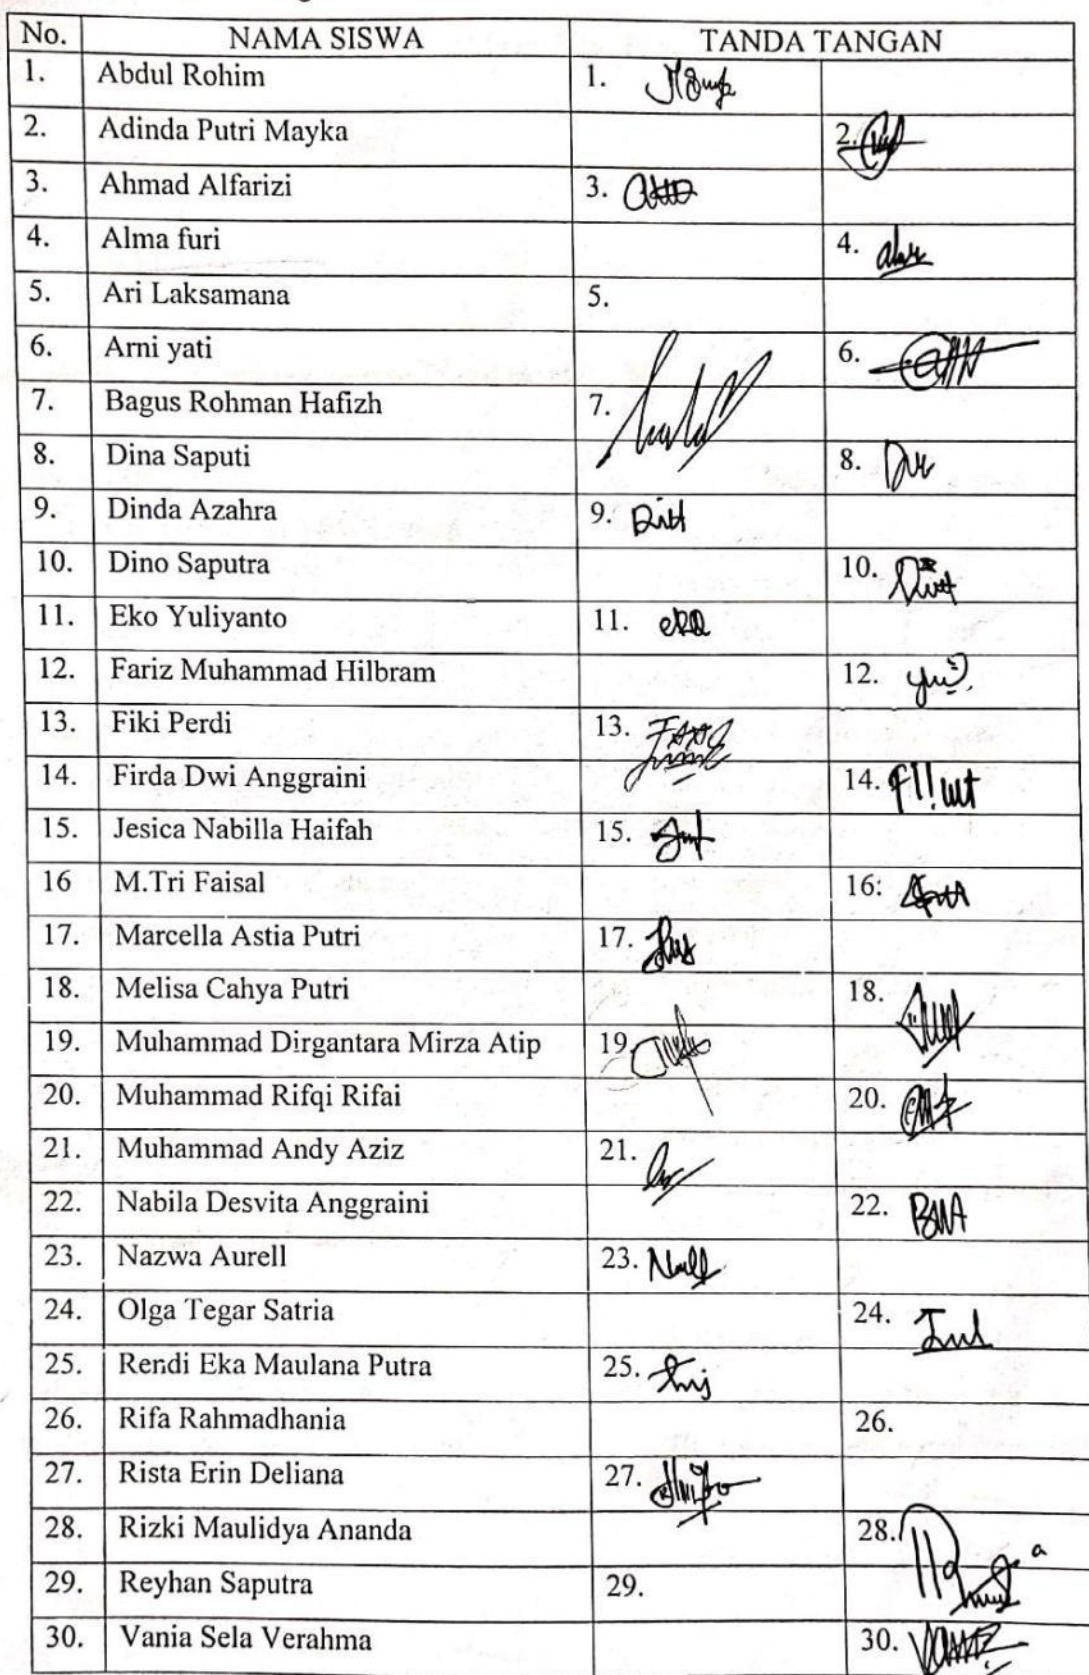 No. NAMA SISWA TANDA TANGAN
1. Abdul Rohim 1.
2. Adinda Putri Mayka 2.
3. Ahmad Alfarizi 3.
4. Alma furi 4.
5. Ari Laksamana 5.
6. Arni yati 6.
7. Bagus Rohman Hafizh 7.
8. Dina Saputi 8.
9. Dinda Azahra 9.
10. Dino Saputra 10.
11. Eko Yuliyanto 11.
12. Fariz Muhammad Hilbram 12.
13. Fiki Perdi 13.
14. Firda Dwi Anggraini 14.
15. Jesica Nabilla Haifah 15.
16 M.Tri Faisal 16:
17. Marcella Astia Putri 17.
18. Melisa Cahya Putri 18.
19. Muhammad Dirgantara Mirza Atip 19.
20. Muhammad Rifqi Rifai 20.
21. Muhammad Andy Aziz 21.
22. Nabila Desvita Anggraini 22.
23. Nazwa Aurell 23.
24. Olga Tegar Satria 24.
25. Rendi Eka Maulana Putra 25.
26. Rifa Rahmadhania 26.
27. Rista Erin Deliana 27.
28. Rizki Maulidya Ananda 28.
29. Reyhan Saputra 29.
30. Vania Sela Verahma 30.